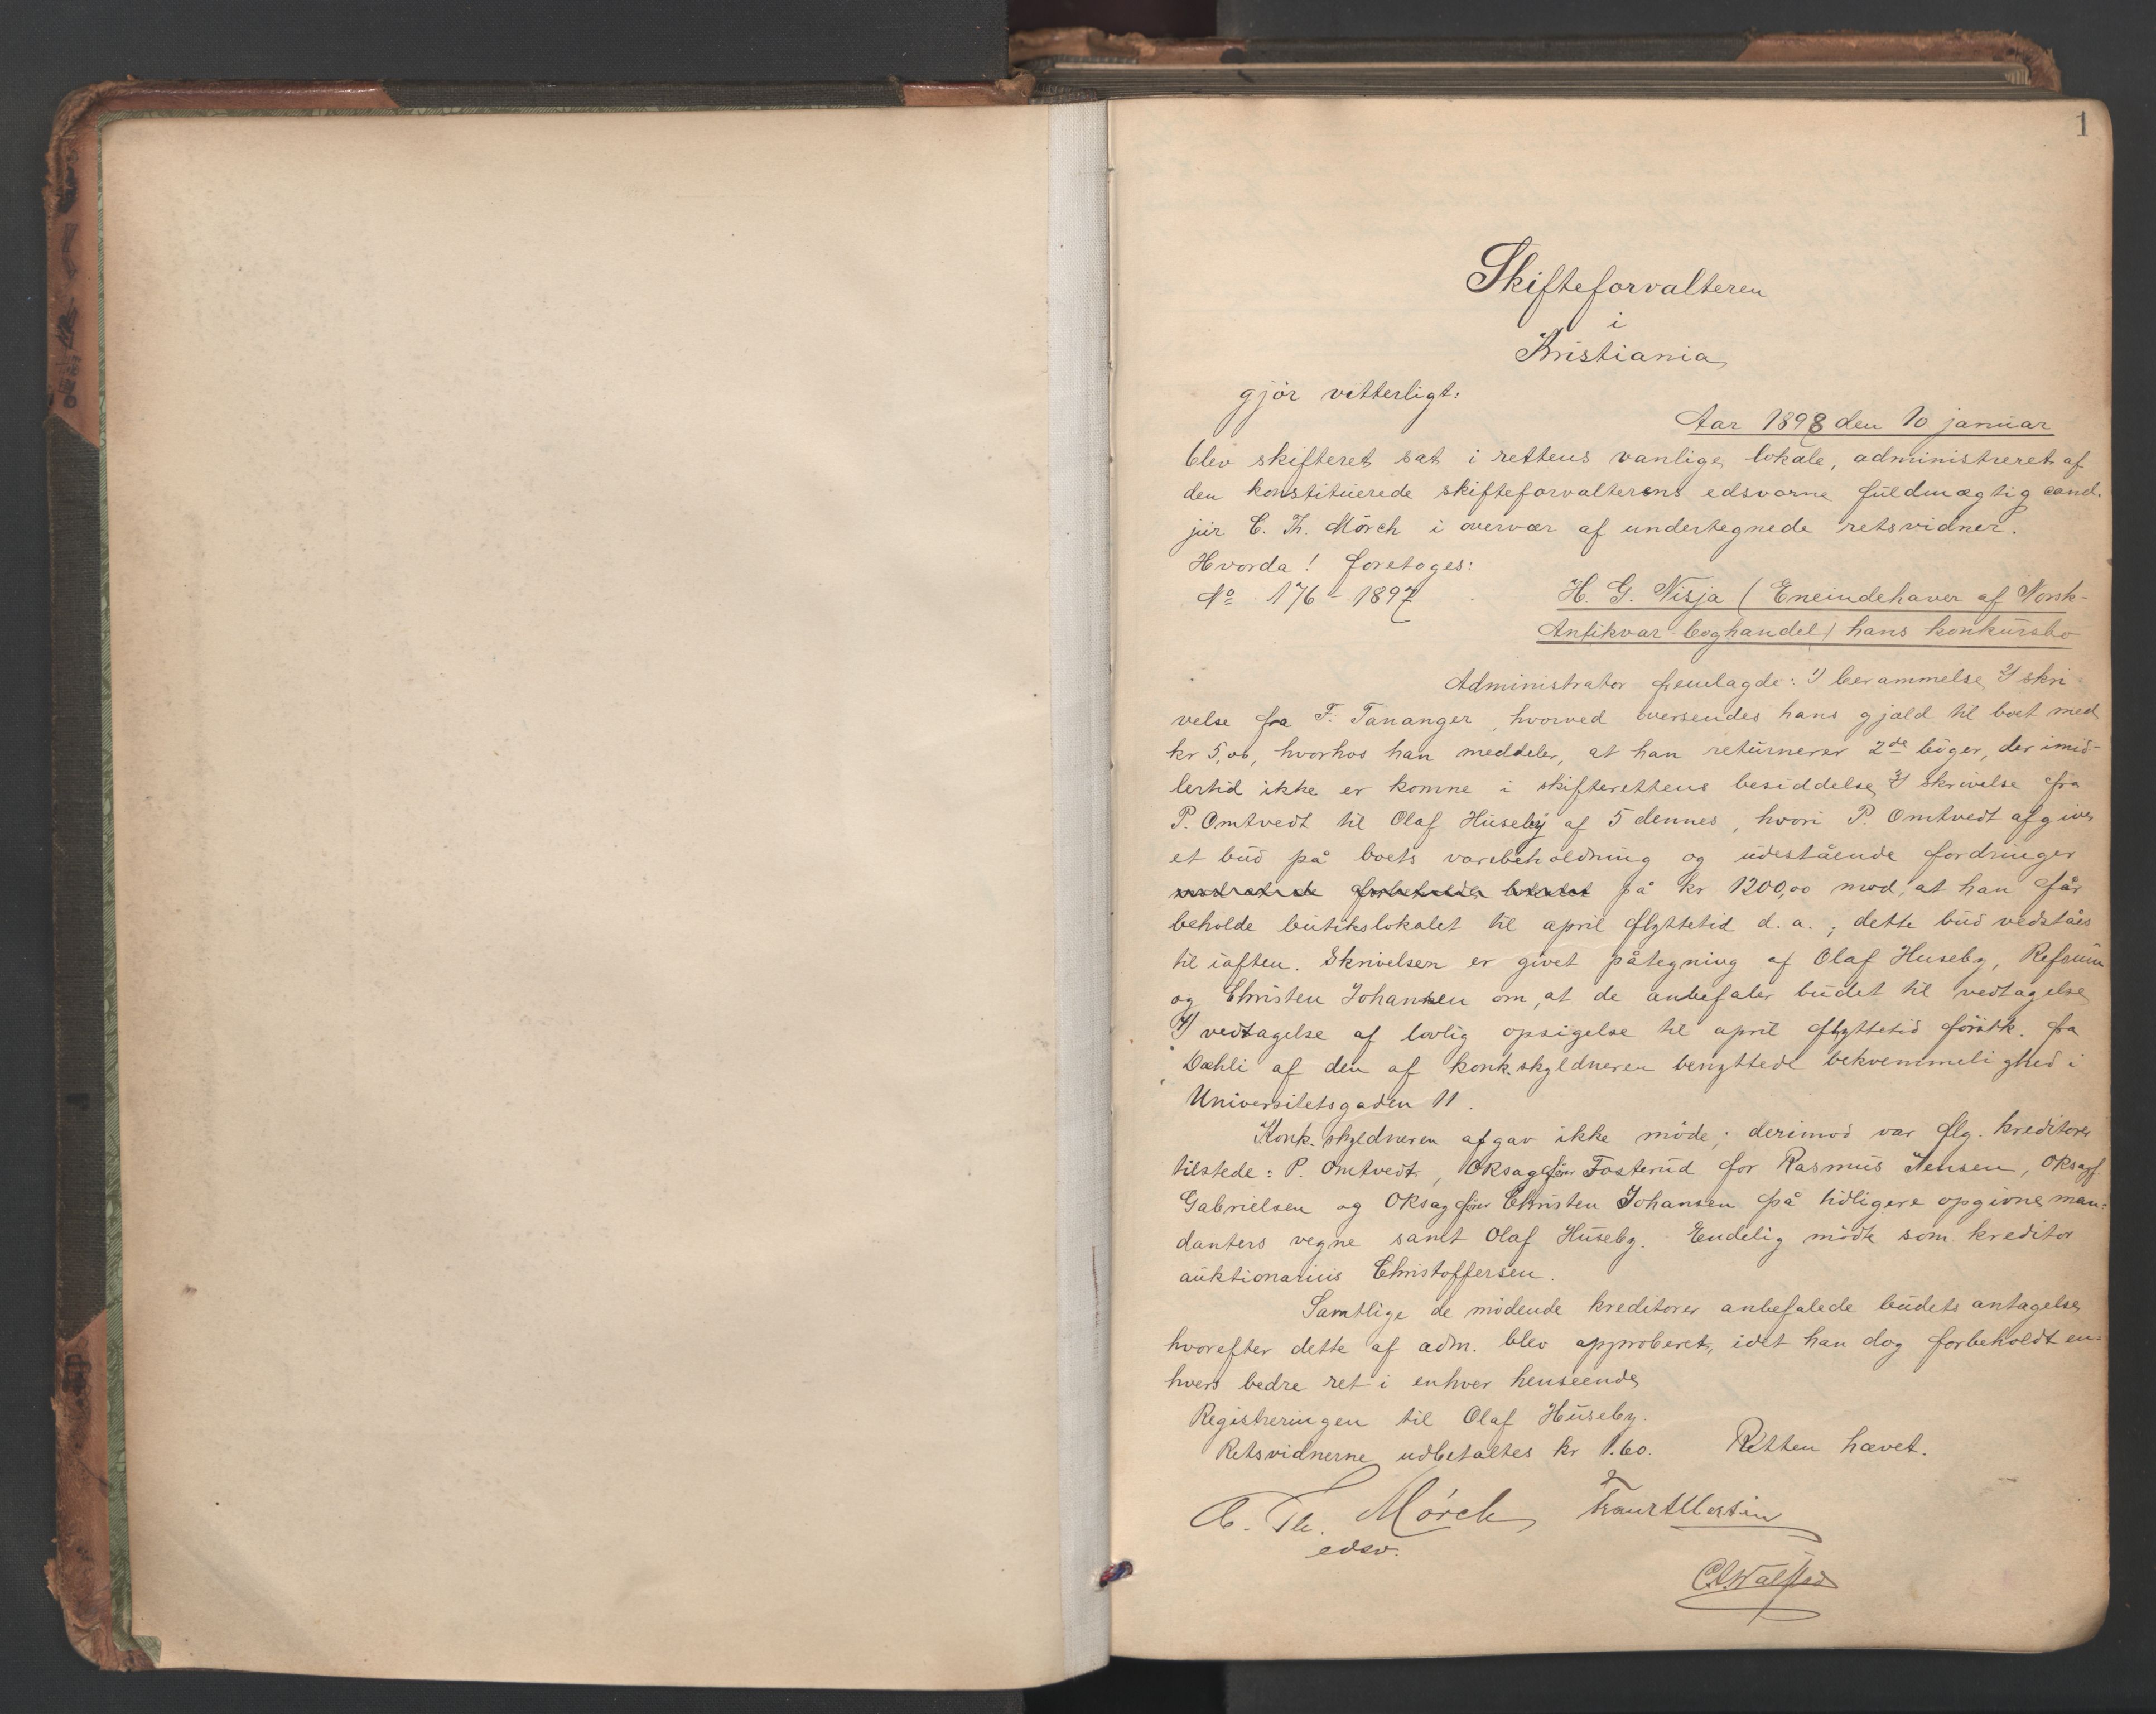 1
Skifteforvalteren
i
Kristiania
gjör vitterligt:
Aar 1898 den 10 januar
blev skifteret sat i rettens vanlige lokale, administreret af
den konstituerede skifteforvalterens edsvorne fuldmægtig cand.
jur C. Th. Mörch i overvær af undertegnede retsvidner.
Hvorda! foretoges:
No 176 - 1897
H. G. Nisja (Eneindehaver af Norsk-
Antikvar-boghandel) hans konkursbo
Administrator fremlagde: 1) berammelse 2) skri-
velse fra F. Tananger, hvorved oversendes hans gjæld til boet med
kr 5,00, hvorhos han meddeler, at han returnerer 2de böger, der imid-
lertid ikke er komne i skifterettens besiddelse 3) skrivelse fra
P. Omtvedt til Olaf Huseby af 5 dennes, hvori P. Omtvedt afgiver
et bud på boets varebeholdning og udestående fordringer
på kr 1200,00 mod, at han får
beholde butikslokalet til april flyttetid d. a.; dette bud vedståes
til iaften. Skrivelsen er givet påtegning af Olaf Huseby,
og Christen Johansen om, at de anbefaler budet til vedtagelse
4) vedtagelse af lovlig opsigelse til april flyttetid fra
Dæhli af den af konk.skyldneren benyttede bekvemmelighed i
Universitetsgaden 11.
Konk.skyldneren afgav ikke möde; derimod var flg. kreditorer
tilstede: P. Omtvedt, Oksagförer Fosterud for Rasmus Jensen, Oksagf.
Gabrielsen og Oksagförer Christen Johansen på tidligere opgivne man-
danters vegne samt Olaf Huseby. Endelig mödte som kreditor
auktionarius Christoffersen.
Samtlige de mödende kreditorer anbefalede budets antagelse
hvorefter dette af adm. blev approberet, idet han dog forbeholdt en-
hvers bedre ret i enhver henseende
Registreringen til Olaf Huseby.
Retsvidnerne udbetaltes kr 1.60. Retten hævet.
C. Th. Mörch
edsv.
C. Walstad